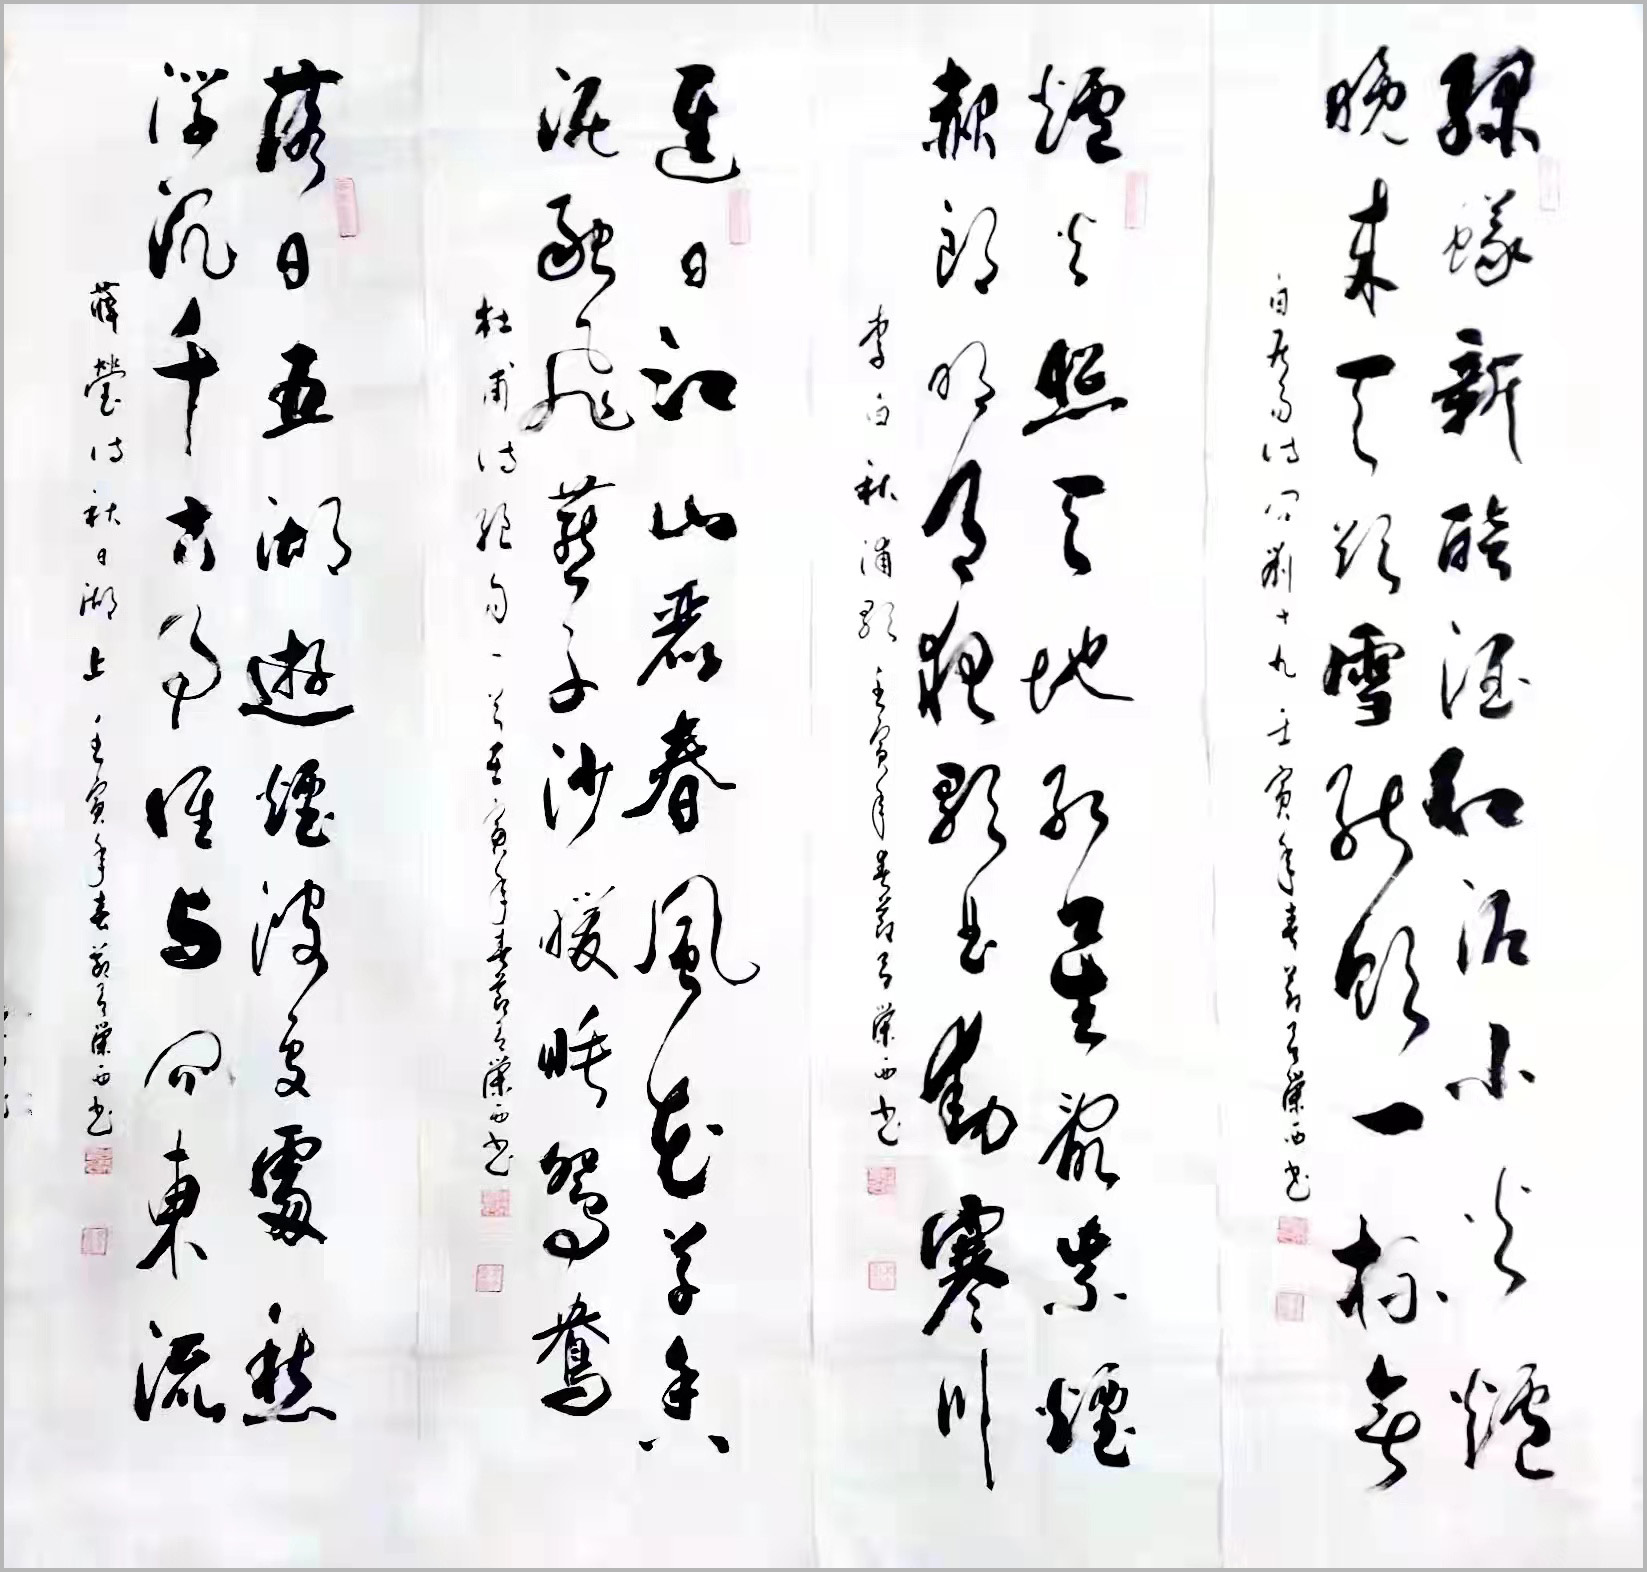 綠蟻新醅酒紅泥小火爐
晚來天欲雪能飲一杯無
白居易詩问劉十九 壬寅年春節榮西书
爐火照天地紅星亂紫煙
赧郎明月夜歌曲動寒川
李白秋浦歌 壬寅年春節榮西书
遲日江山麗春風花草香
泥融飛燕子沙暖睡鴛鴦
杜甫詩絕句一首 壬寅年春節榮西书
落日五湖遊煙波處處愁
浮沉千古事誰与问東流
薛瑩詩秋日湖上 壬寅年春節榮西书